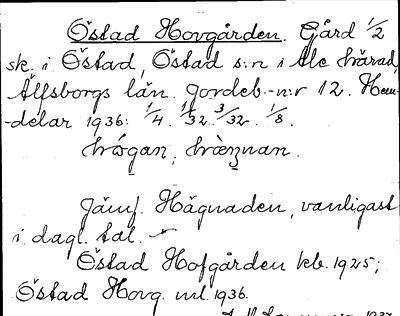 Östad Hovgården. Gård 1/2
sk. i Östad, Östad s:n i Ale härad,
Älfsborgs län. Jordeb.-n:r 12. Hem-
-delar 1936: 1/4. 11/32. 3/32. 1/8.
Jämf. Hågnaden, vanligast
i dagl. tal.
Östad Hofgården kb. 1925;
Östad Hovg. ml. 1936.